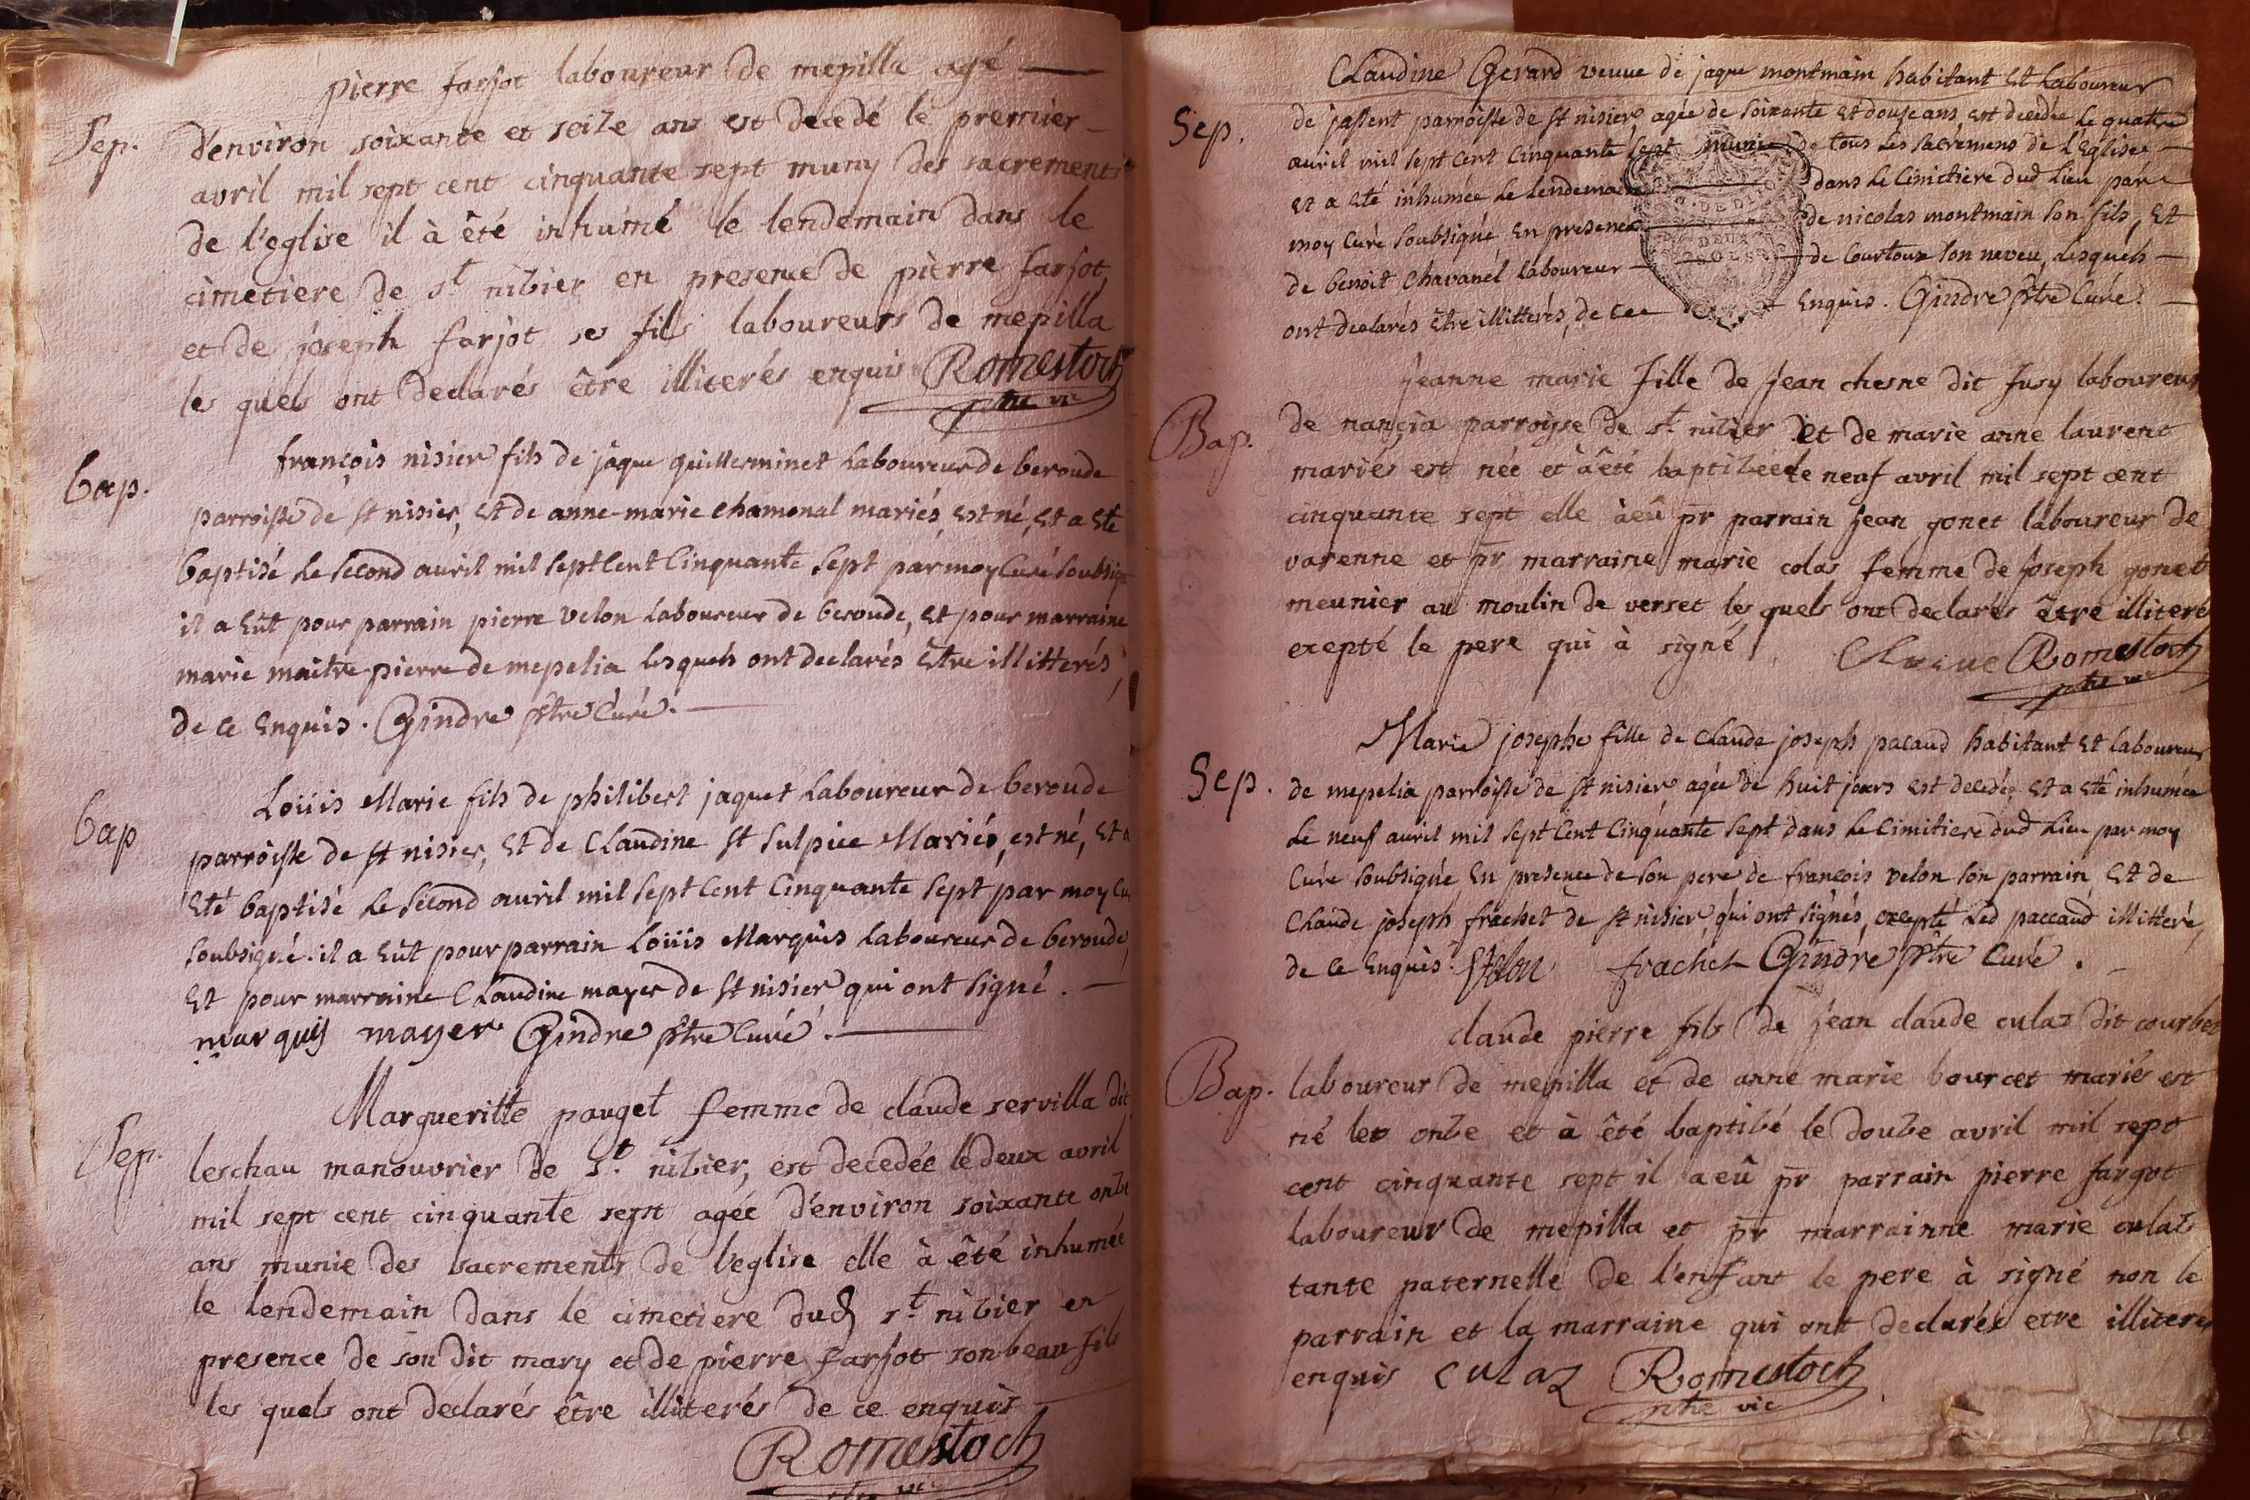 pierre farjot laboureur de mepilla agé
Sep. d'environ soixante et seize ans est decedé le premier
avril mil sept cent cinquante sept muny des sacrements
de l'eglise il à êté inhumé le lendemain dans le
cimetiere de st nibier en presence de pierre farjot
et de joseph farjot se fils laboureurs de mepilla
les quels ont declarés être illiterés enquis Romestoch
ptre vic
françois nisier fils de jaque guillerminet Laboureur de beroude
bap. parroisse de st nisier, Et de anne-marie chamonal mariés, est né, Et a Eté
baptisé Le second avril mil sept Cent Cinquante sept par moy Curé soubsigné
il a Eût pour parrain pierre velon Laboureur de beroude, Et pour marraine
marie maitre-pierre de mepelia Lesquels ont declarés Être illitterés,
de ce Enquis. Gindre ptre Curé.
Loüis Marie fils de philibert jaquet Laboureur de beroude
bap parroisse de st nisier, Et de Claudine st sulpice Mariés, est né, Et a
Eté baptisé Le second avril mil sept Cent Cinquante sept par moy Cu
soubsigné. il a Eût pour parrain Loüis Marquis Laboureur de beroude,
Et pour marraine Claudine mayer de st nisier qui ont signé.
marquis mayer Gindre ptre Curé.
Margueritte pauget femme de claude servilla dit
Sep. leschau manouvrier de st nibier, est decedée le deux avril
mil sept cent cinquante sept agée d'environ soixante onze
ans munie des sacrements de l'eglise elle à êté inhumée
le lendemain dans le cimetiere dud st nibier en
presence de son dit mary et de pierre farjot son beau fils
les quels ont declarés être illiterés de ce enquis
Romestoch
ptre vic
Claudine Gerard veuve de jaque montmain habitant Et Laboureur
Sep. de jassent parroisse de st nisier agée de soixante Et douse ans est decedée Le quatre
avril mil sept Cent Cinquante sept munie de tous Les sacremens de L'Eglise
Et a Eté inhumée Le Lendemain dans Le Cimitiere dud Lieu par
moy Curé soubsigné, En presence de nicolas montmain son fils, Et
de benoit Chavanel Laboureur de Courtoux son neveu, Lesquels
ont declarés Être illitterés, de ce Enquis. Gindre ptre Curé.
jeanne marie fille de jean chesne dit fusy laboureur
Bap. de nancia parroisse de st nibier et de marie anne laurent
mariés est née et à êté baptibée le neuf avril mil sept cent
cinquante sept elle à eû pr parrain jean gonet laboureur de
varenne et pr marraine marie colas femme de joseph gonet
meunier au moulin de verset les quels ont declarés être illiteré
exepté le pere qui à signé Romestoch
ptre vic
Marie josephe fille de Claude joseph pacaud habitant Et Laboureur
Sep. de mepelia parroisse de st nisier agée de huit jours est decedée, Et a Eté inhumée
Le neuf avril mil sept Cent Cinquante sept dans Le Cimitiere dud Lieu par moy
Curé soubsigné, En presence de son pere, de françois velon son parrain, Et de
Claude joseph frachet de st nisier, qui ont signés, excepté Led paccaud illitteré,
de ce Enquis. velon frachet Gindre ptre Curé.
claude pierre fils de jean claude culaz dit courbet
Bap. laboureur de mepilla et de anne marie bourcet mariés est
né le onze et à êté baptibé le douze avril mil sept
cent cinquante sept il a eû pr parrain pierre fargot
laboureur de mepilla et pr marrainne marie culaz
tante paternelle de l'enfant le pere à signé non le
parrain et la marraine qui ont declarés etre illiterés
enquis culaz Romestoch
ptre vic